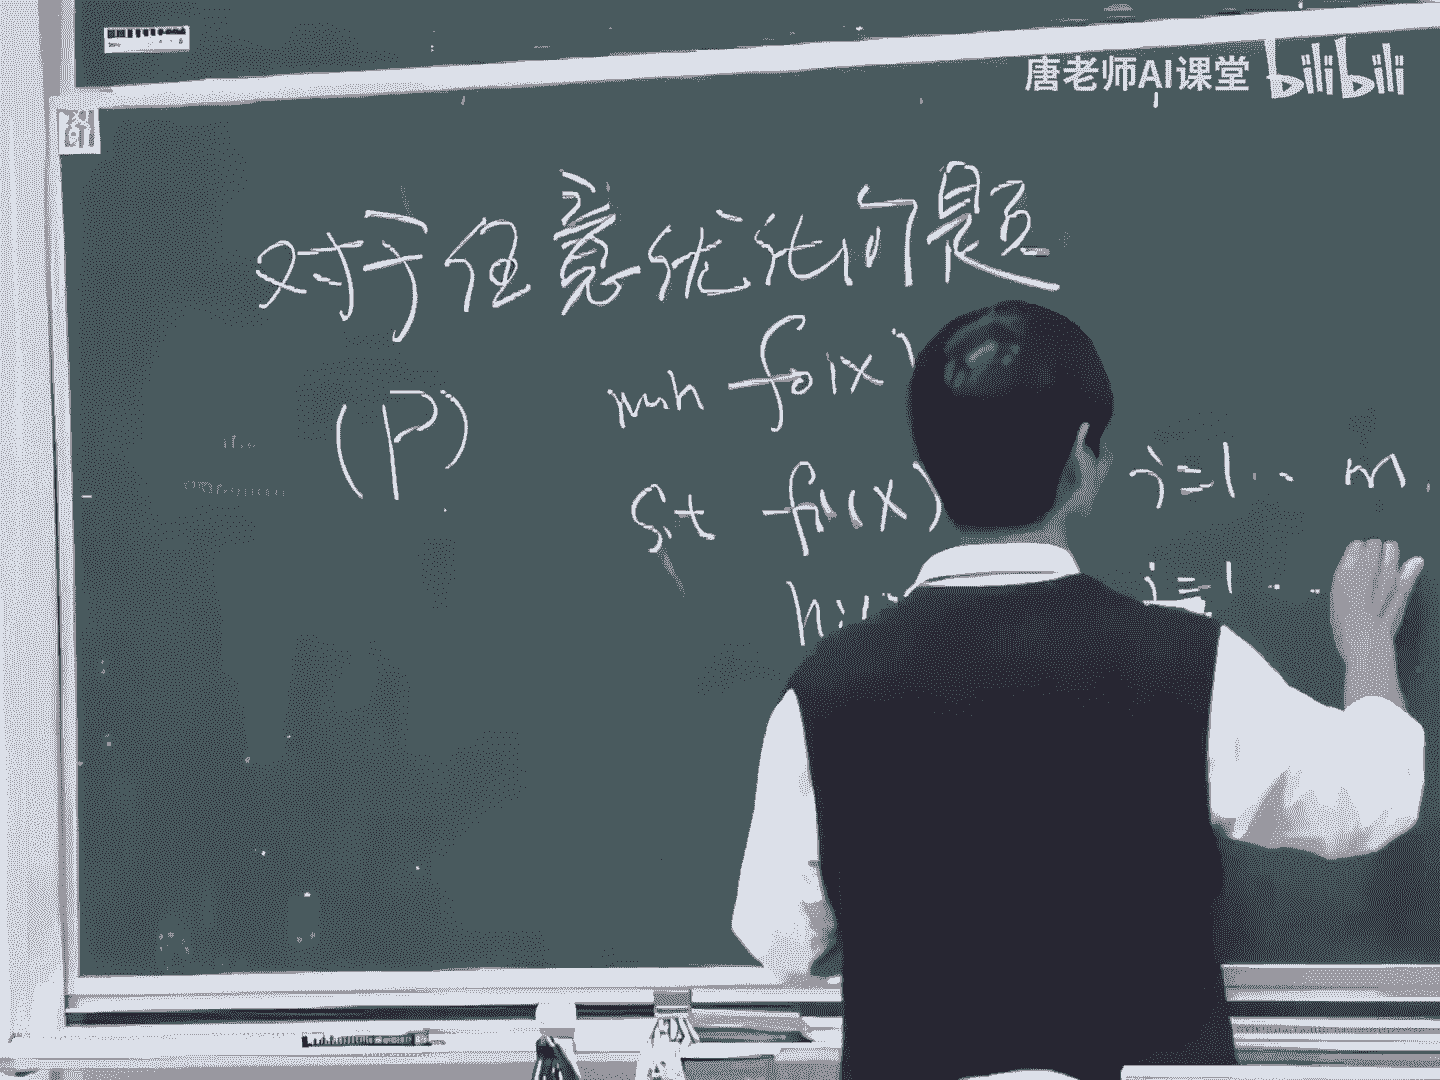 唐老师AI课堂 bilibili
对于任意优化问题
(P) min f₀(x)
s.t fᵢ(x) i=1 .. m.
hᵢ( i=1 ...